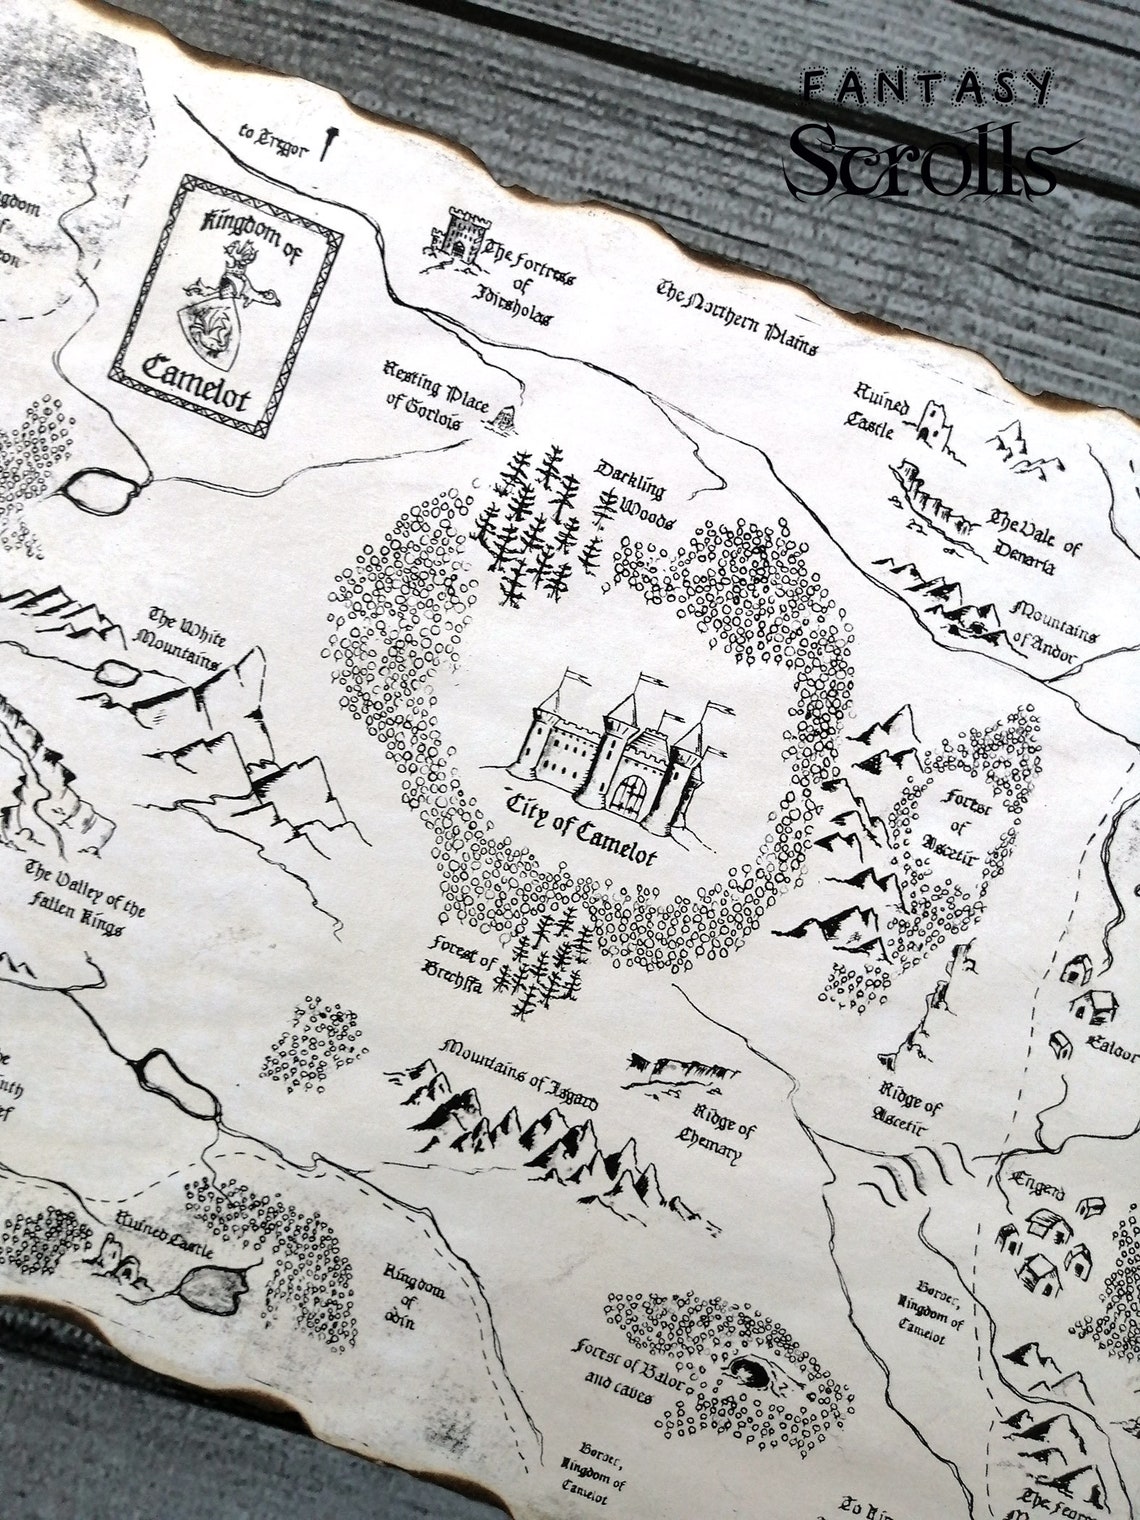 FANTASY
Scrolls
to Tregor
Kingdom of
Camelot
The Fortress
of
Idirsholas
The Northern Plains
Resting Place
of Gorlois
Ruined
Castle
Darkling
Woods
The Vale of
Denaria
Mountains
of Andor
The White
Mountains
City of Camelot
Forest
of
Ascetir
The Valley of the
Fallen Kings
Forest of
Brechfa
Mountains of Isgard
Ridge of
Chemary
Ridge of
Ascetir
Ealdor
Engerd
Ruined Castle
Kingdom
of
Odin
Border,
Kingdom of
Camelot
Forest of Balor
and caves
Border,
Kingdom of
Camelot